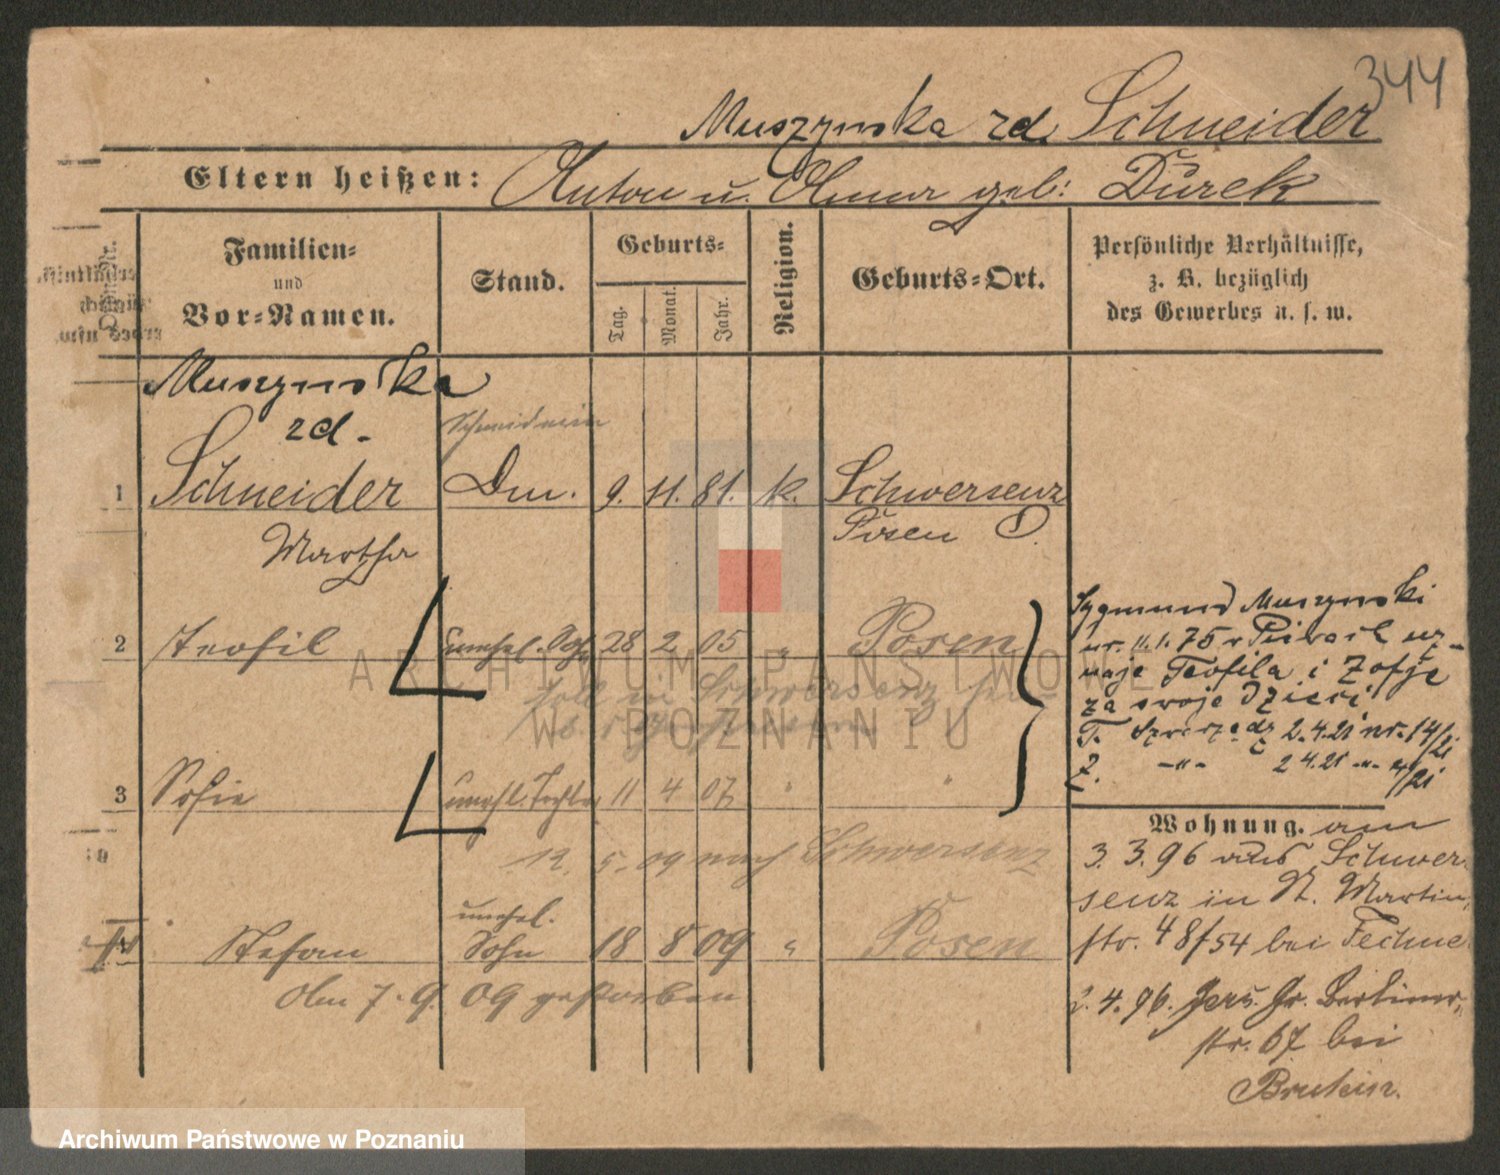 344
Muszynska zd. Schneider
Eltern heißen: Anton u. Anna geb: Durek
Lauf. Nr.
Familien- und Vor-Namen.
Stand.
Geburts-
Tag. Monat. Jahr.
Religion.
Geburts-Ort.
Persönliche Verhältnisse,
z. B. bezüglich
des Gewerbes u. s. w.
Muszynska
zd.
Schneiderin
1 Schneider Dm. 9. 11. 81. k. Schwersenz
Martha Posen O.
2 Teofil unehel. Sohn 28 2 05 " Posen
soll in Schwersenz
3 Sofie unehl. Tochter 11 4 07 " "
12. 5. 09 nach Schwersenz
unehel.
4 Stefan Sohn 18 8 09 " Posen
Am 7. 9. 09 gestorben
Zygmund Muszynski
ur. 11.1.75 w uz-
naje Teofila i Zofje
za swoje dzieci
T. 2.4.21 nr. 14/21
Z. -"- 2 4.21 -"-
Wohnung. am
3. 3. 96 aus Schwer-
senz in St. Martin-
str. 48/54 bei
2. 4. 96. Gr. Berliner-
str. 67 bei
ARCHIWUM PAŃSTWOWE
W POZNANIU
Archiwum Państwowe w Poznaniu